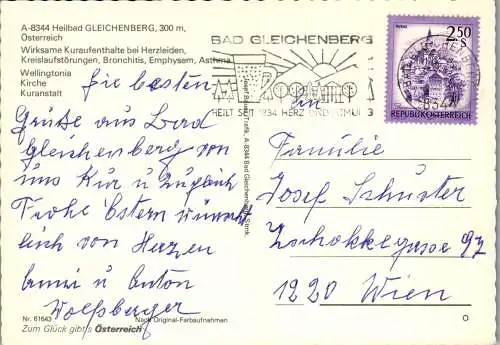 A-8344 Heilbad GLEICHENBERG, 300 m,
Österreich
Wirksame Kuraufenthalte bei Herzleiden,
Kreislaufstörungen, Bronchitis, Emphysem, Asthma
Wellingtonia
Kirche
Kuranstalt
BAD GLEICHENBERG
HEILT SEIT 1834 HERZ UND ATMUNG
2.50
S
REPUBLIK ÖSTERREICH
8344
Die besten
Grüße aus Bad
Gleichenberg von
uns Kur u zugleich
Frohe Ostern wünscht
lich von Herzen
u Anton
Wolfsberger
A-8344 Bad Gleichenberg, Stmk.
An
Familie
Josef Schuster
Zschokkegasse 97
1220 Wien
Nr. 61643
Nach Original-Farbaufnahmen
Zum Glück gibt's Österreich